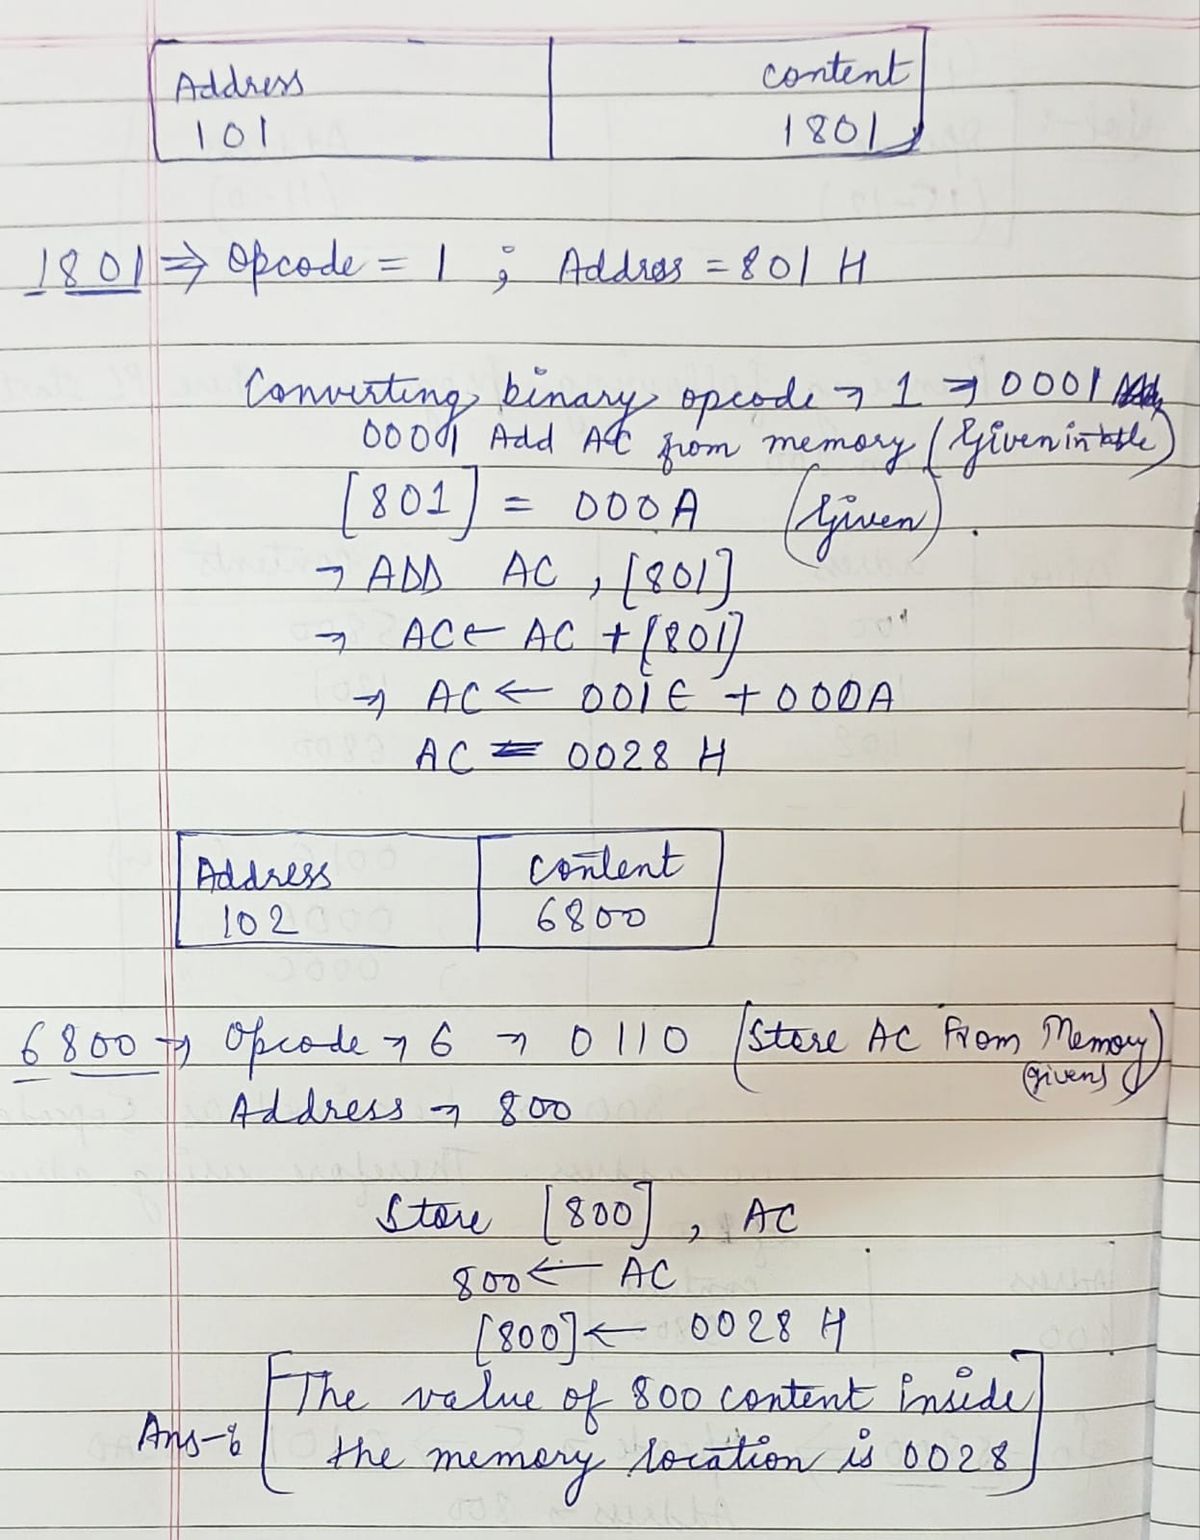 Address content
101 1801
1801 ⇒ Opcode = 1 ; Address = 801 H
Converting binary opcode → 1 ⇒ 0001
00001 Add AC from memory (Given in table)
[801] = 000A (Given).
→ ADD AC, [801]
→ AC ← AC + [801]
→ AC ← 001E + 000A
AC = 0028 H
Address Content
102 6800
6800 → Opcode → 6 → 0110 (Store AC From Memory)
(given)
Address → 800
Store [800], AC
800 ← AC
[800] ← 0028 H
[The value of 800 content inside
Ans- the memory location is 0028]